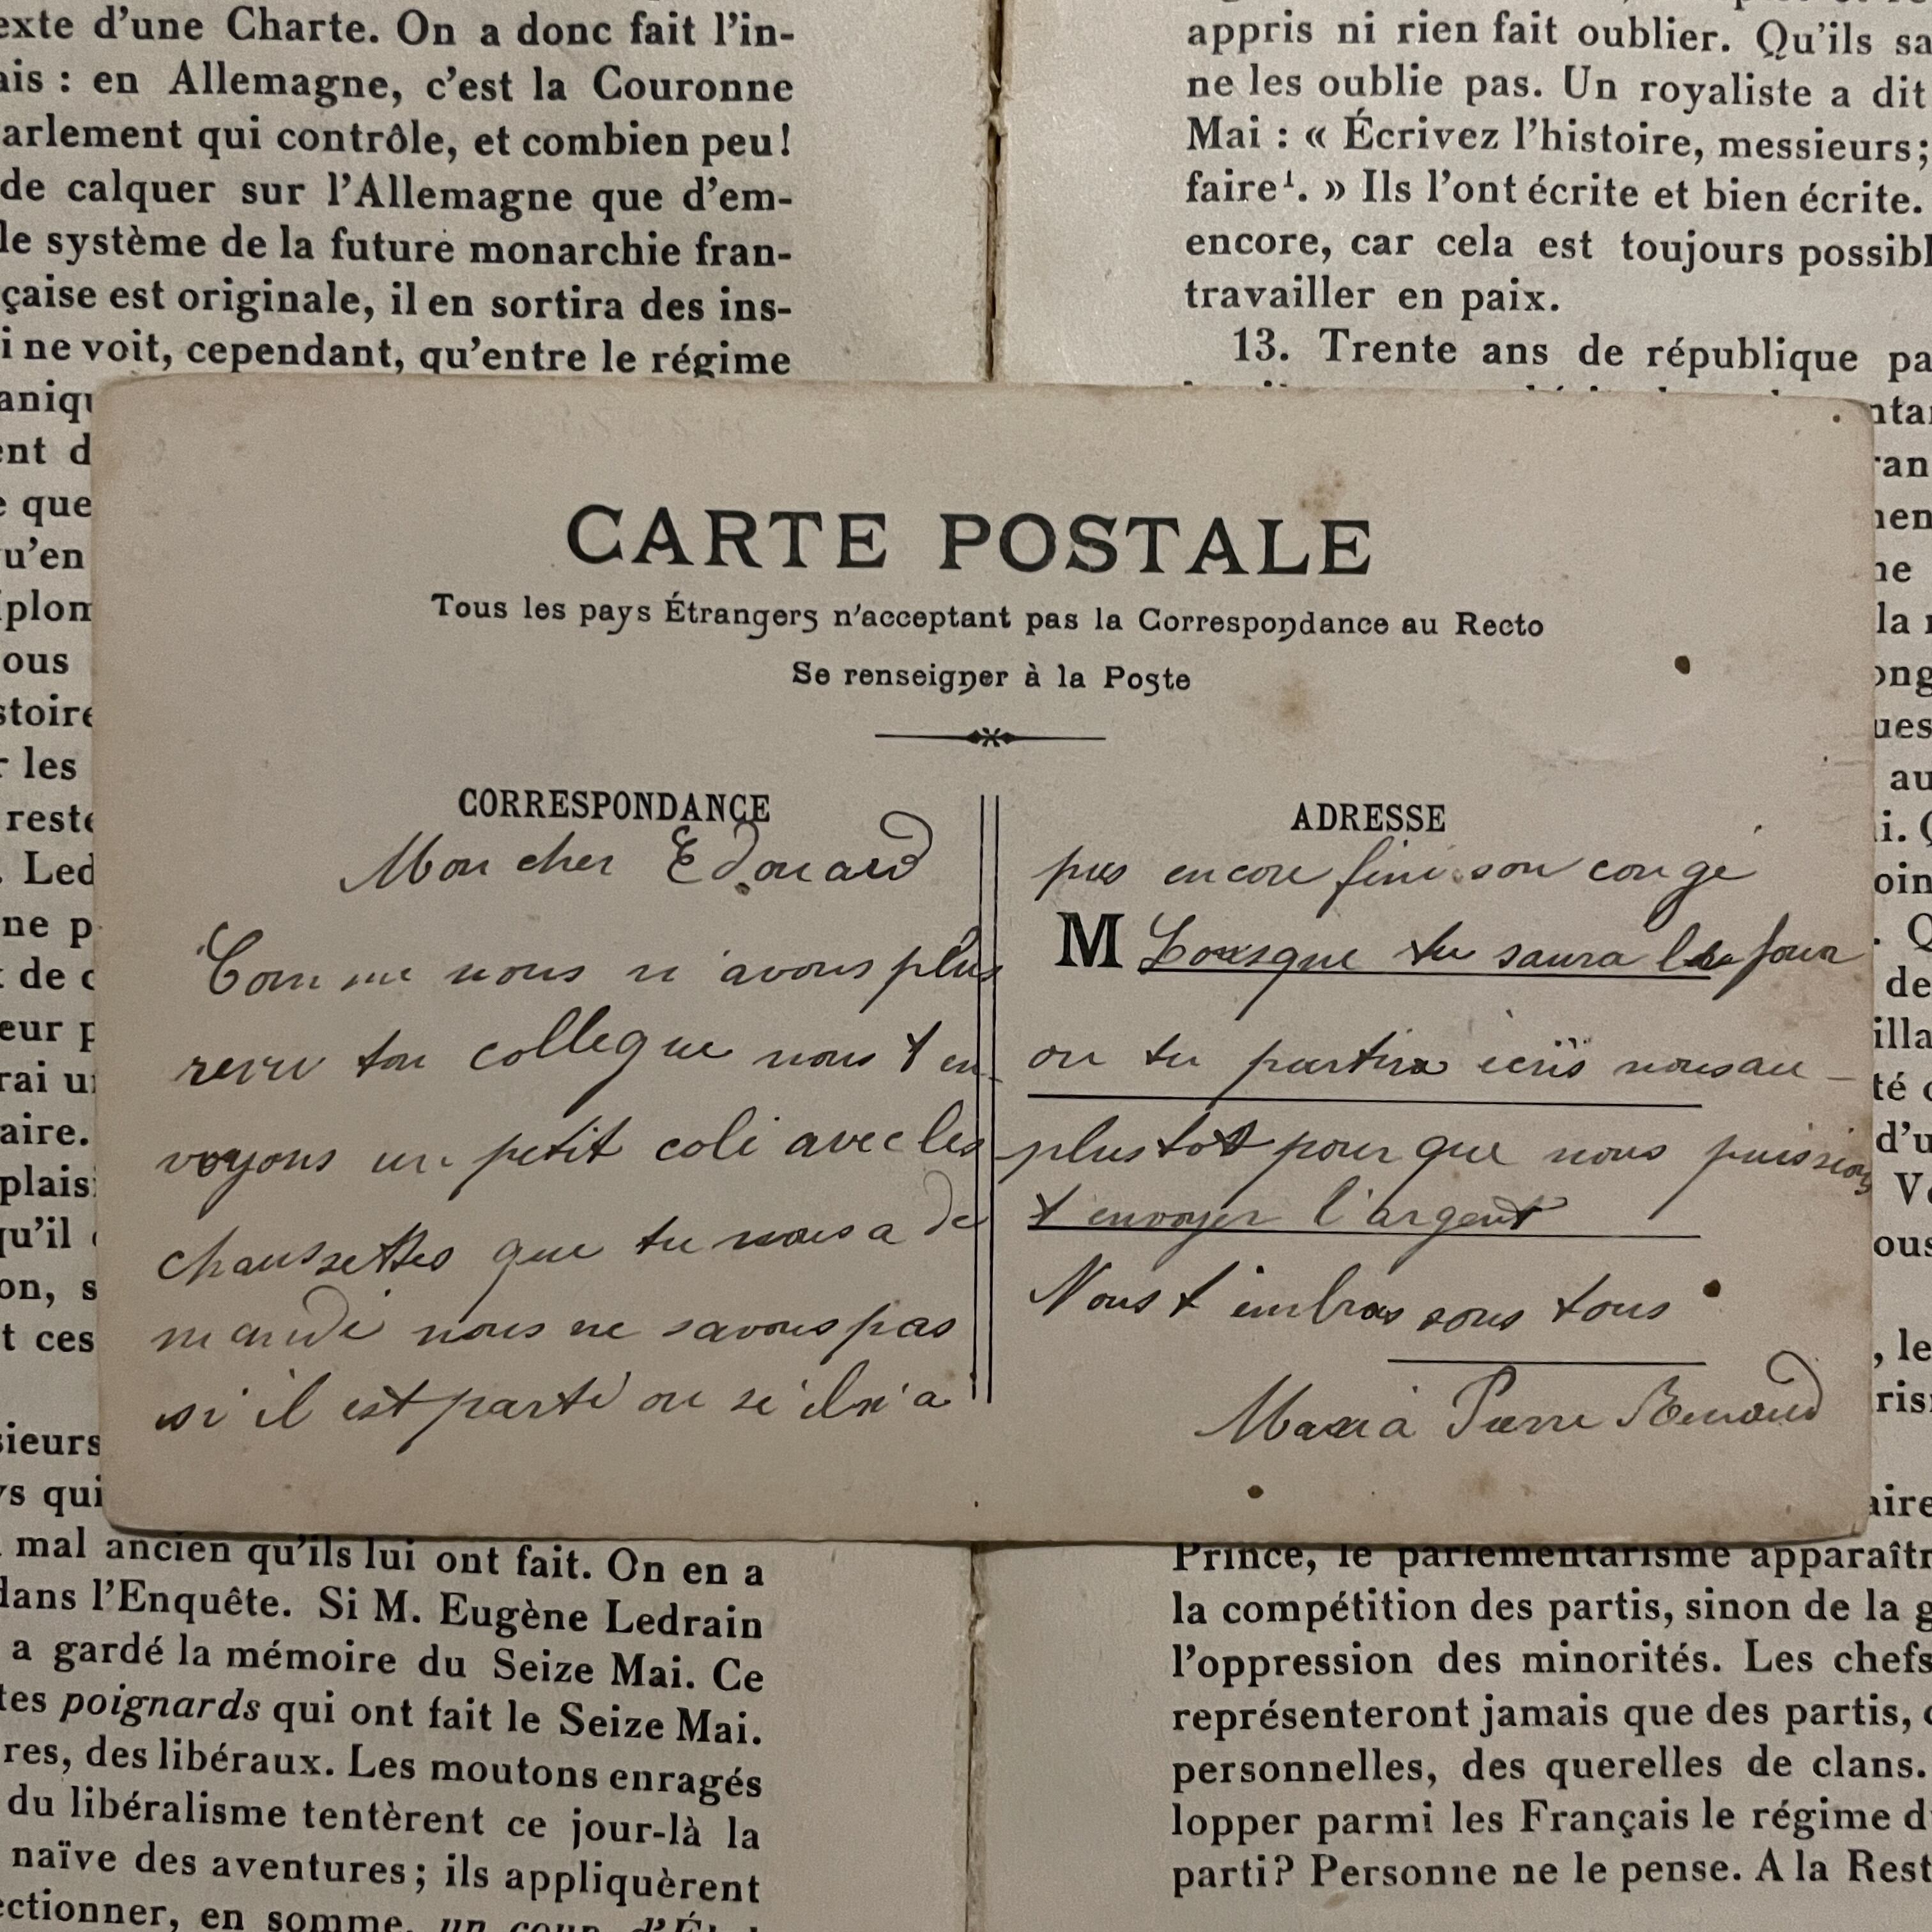 exte d'une Charte. On a donc fait l'in-
ais : en Allemagne, c'est la Couronne
arlement qui contrôle, et combien peu!
de calquer sur l'Allemagne que d'em-
le système de la future monarchie fran-
çaise est originale, il en sortira des ins-
i ne voit, cependant, qu'entre le régime
aniqu
ent d
e que
u'en
iplom
ous
stoire
r les
reste
. Led
ne p
t de c
eur p
rai u
aire.
plais
qu'il
on, s
t ces
sieurs
ys qui
mal ancien qu'ils lui ont fait. On en a
dans l'Enquête. Si M. Eugène Ledrain
a gardé la mémoire du Seize Mai. Ce
tes poignards qui ont fait le Seize Mai.
res, des libéraux. Les moutons enragés
du libéralisme tentèrent ce jour-là la
naïve des aventures; ils appliquèrent
ectionner, en somme, un coup d'Ét
CARTE POSTALE
Tous les pays Étrangers n'acceptant pas la Correspondance au Recto
Se renseigner à la Poste
CORRESPONDANCE
Mon cher Edouard
Comme nous n'avons plus
revu ton collegue nous t en-
voyons un petit coli avec les
chaussettes que tu nous a de
mandé nous ne savons pas
si il est parti ou si il n'a
ADRESSE
pas encore fini son congé
M Lorsque tu saura le jour
ou tu partira ecris nous au-
plustot pour que nous puission
t envoyer l'argent
Nous t'embrassons tous
Maria Pierre Renaud
appris ni rien fait oublier. Qu'ils sa
ne les oublie pas. Un royaliste a dit
Mai : « Écrivez l'histoire, messieurs;
faire¹. » Ils l'ont écrite et bien écrite.
encore, car cela est toujours possibl
travailler en paix.
13. Trente ans de république pa
ntai
ran
men
ne
la
ong
ues
au
i. Q
oin
. Q
de
illa
té
d'u
Ve
ous
, le
ris
aire
Prince, le parlementarisme apparaîtr
la compétition des partis, sinon de la g
l'oppression des minorités. Les chefs
représenteront jamais que des partis,
personnelles, des querelles de clans.
lopper parmi les Français le régime d
parti? Personne ne le pense. A la Rest